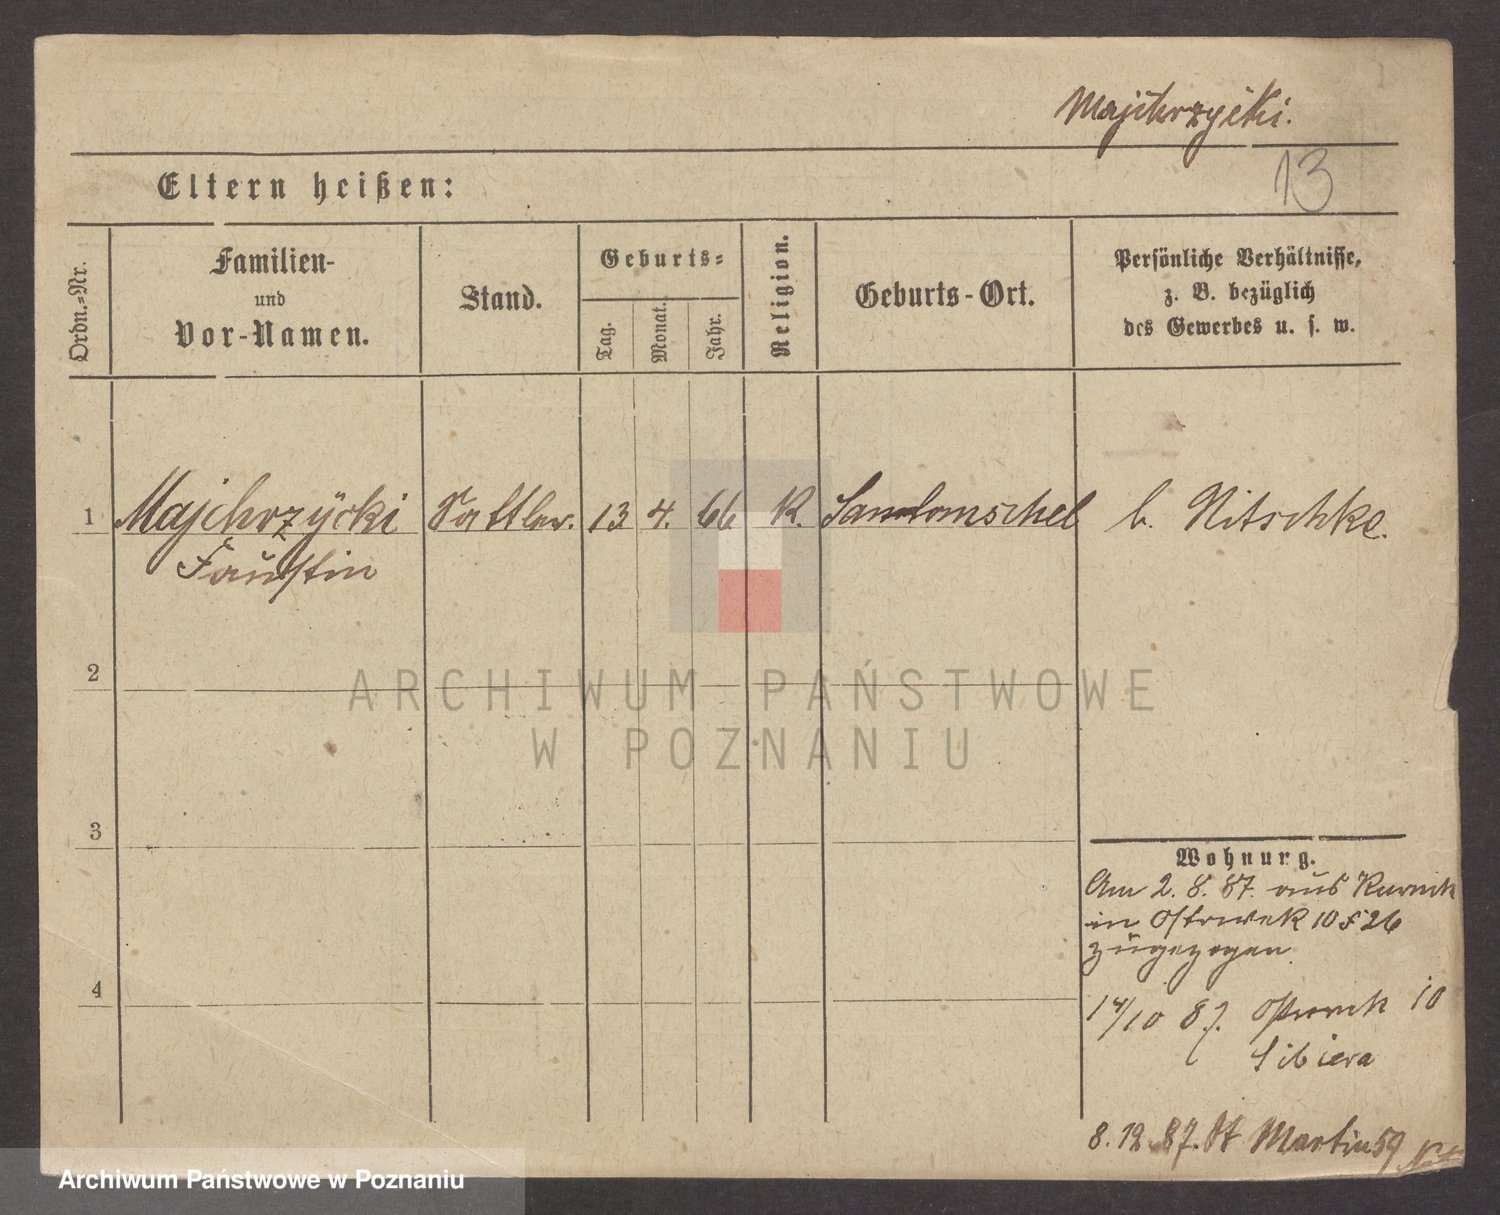 Majchrzycki.
13
Eltern heißen:
Ordn.=Nr.
Familien-
und
Vor-Namen.
Stand.
Geburts=
Tag.
Monat.
Jahr.
Religion.
Geburts-Ort.
Persönliche Verhältnisse,
z. B. bezüglich
des Gewerbes u. s. w.
1 Majchrzycki Sattler. 13 4. 66 K. Santomischel b. Nitschke.
Faustin
2
3
4
Wohnung.
Am 2. 8. 87. aus Kurnik
in Ostrwek 10 26
zugezogen.
14/10 87. Ostrwek 10
Sibiera
8. 12. 87. St Martin 59
ARCHIWUM PAŃSTWOWE
W POZNANIU
Archiwum Państwowe w Poznaniu